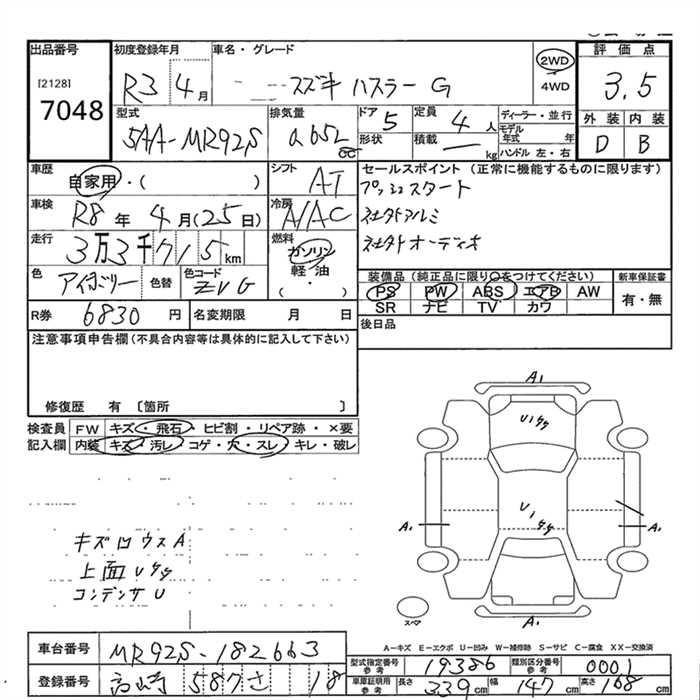 出品番号 初度登録年月 車名・グレード 評価点
[2128] R3 4月 スズキ ハスラー G 2WD 3.5
7048 4WD
型式 排気量 ドア 5 定員 4人 ディーラー・並行 外装 内装
5AA-MR92S 0.65L 形状 積載 kg モデル年式 年 D B
ハンドル 左・右
車歴 シフト セールスポイント(正常に機能するものに限ります)
自家用・( ) AT プッシュスタート
車検 冷房 社外アルミ
R8年 4月(25日) A/AC 社外オーディオ
走行 燃料
3万3千715km ガソリン
色 色替 色コード 軽油 装備品(純正品に限り○をつけてください) 新車保証書
アイボリー ZVG (・) PS PW ABS エアB AW 有・無
SR ナビ TV カワ
R券 6830円 名変期限 月 日 後日品
注意事項申告欄(不具合内容等は具体的に記入して下さい)
修復歴 有 〔箇所 〕
検査員 FW キズ・飛石・ヒビ割・リペア跡・×要
記入欄 内装 キズ・汚レ・コゲ・穴・スレ・キレ・破レ
A1
U1
U1
A1 A1
キズ
上面
コンデンサ U
スペア
A-キズ E-エクボ U-凹み W-補修跡 S-サビ C-腐食 XX-交換済
車台番号 MR92S-182663 型式指定番号 参考 19386 類別区分番号 参考 0001
登録番号 高崎 587 さ 18 車庫証明用 参考 長さ 339cm 幅 147cm 高さ 168cm